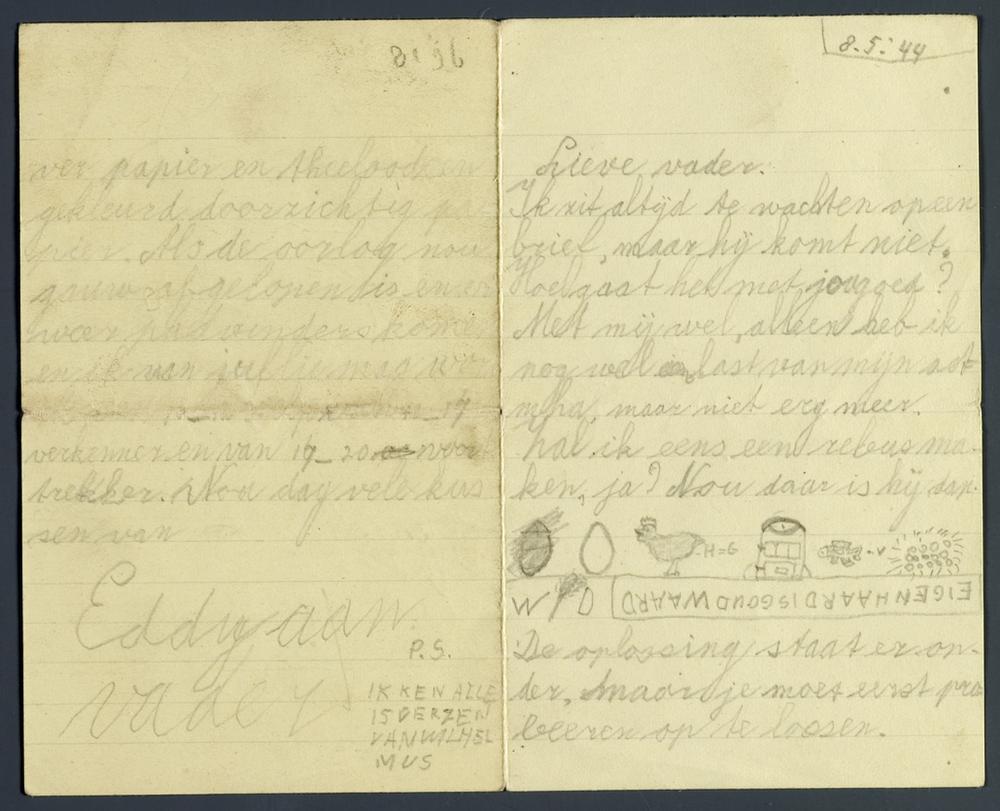 8.5.'44
Lieve vader.
Ik zit altijd te wachten op een
brief, maar hij komt niet.
Hoe gaat het met jou goed?
Met mij wel, alleen heb ik
nog wel last van mijn ast-
ma, maar niet erg meer.
Zal ik eens een rebus ma-
ken, ja? Nou daar is hij dan.
-H=G
-V
EIGEN HAARD IS GOUD WAARD
De oplossing staat er on-
der, maar je moet eerst pro
beeren op te lossen.
ver papier en theelood en
gekleurd doorzichtig pa-
pier. Als de oorlog nou
gauw afgelopen is en er
weer padvinders komen
en ik van jullie mag wor
17
verkenner en van 17-20 voor
trekker. Nou dag vele kus
sen van
Eddy aan
vader
P.S.
IK KEN ALLE
15 VERZEN
VAN WILHEL
MUS